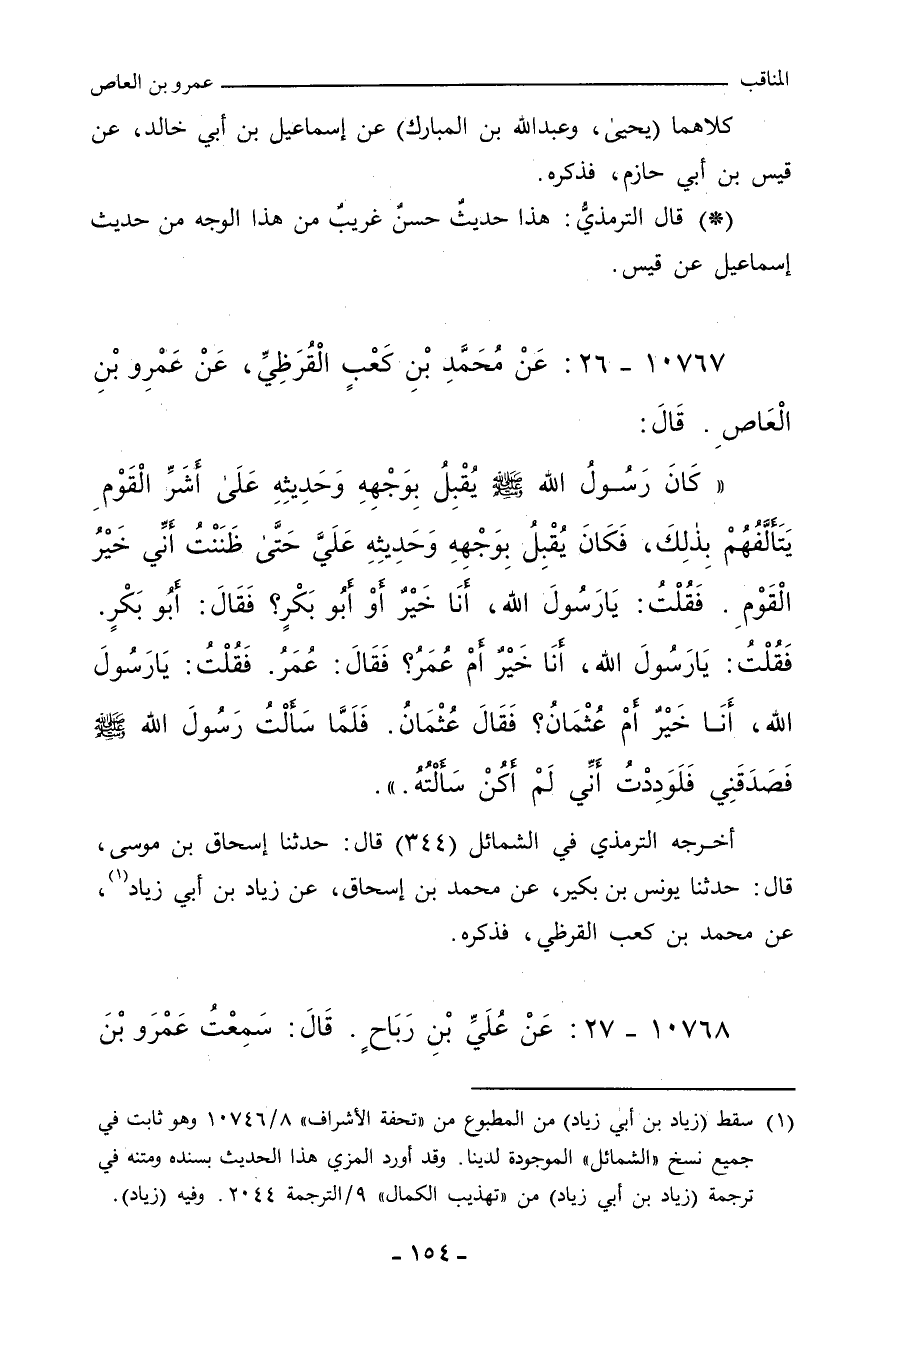 المناقب ــــــــــــــــــــ عمرو بن العاص
كلاهما (يحيىٰ، وعبدالله بن المبارك) عن إسماعيل بن أبي خالد، عن
قيس بن أبي حازم، فذكره.
(*) قال الترمذيُّ: هذا حديثٌ حسنٌ غريبٌ من هذا الوجه من حديث
إسماعيل عن قيس.
١٠٧٦٧ - ٢٦: عَنْ مُحَمَّدِ بْنِ كَعْبٍ الْقُرَظِيِّ، عَنْ عَمْرِو بْنِ
الْعَاصِ. قَالَ:
« كَانَ رَسُولُ الله ﷺ يُقْبِلُ بِوَجْهِهِ وَحَدِيثِهِ عَلَىٰ أَشَرِّ الْقَوْمِ
يَتَأَلَّفُهُمْ بِذٰلِكَ، فَكَانَ يُقْبِلُ بِوَجْهِهِ وَحَدِيثِهِ عَلَيَّ حَتَّىٰ ظَنَنْتُ أَنِّي خَيْرُ
الْقَوْمِ. فَقُلْتُ: يَارَسُولَ الله، أَنَا خَيْرٌ أَوْ أَبُو بَكْرٍ؟ فَقَالَ: أَبُو بَكْرٍ.
فَقُلْتُ: يَارَسُولَ الله، أَنَا خَيْرٌ أَمْ عُمَرُ؟ فَقَالَ: عُمَرُ. فَقُلْتُ: يَارَسُولَ
الله، أَنَا خَيْرٌ أَمْ عُثْمَانُ؟ فَقَالَ عُثْمَانُ. فَلَمَّا سَأَلْتُ رَسُولَ الله ﷺ
فَصَدَقَنِي فَلَوَدِدْتُ أَنِّي لَمْ أَكُنْ سَأَلْتُهُ.».
أخرجه الترمذي في الشمائل (٣٤٤) قال: حدثنا إسحاق بن موسى،
قال: حدثنا يونس بن بكير، عن محمد بن إسحاق، عن زياد بن أبي زياد(١)،
عن محمد بن كعب القرظي، فذكره.
١٠٧٦٨ - ٢٧: عَنْ عُلَيِّ بْنِ رَبَاحٍ. قَالَ: سَمِعْتُ عَمْرَو بْنَ
(١) سقط (زياد بن أبي زياد) من المطبوع من «تحفة الأشراف» ١٠٧٤٦/٨ وهو ثابت في
جميع نسخ «الشمائل» الموجودة لدينا. وقد أورد المزي هذا الحديث بسنده ومتنه في
ترجمة (زياد بن أبي زياد) من «تهذيب الكمال» ٩/الترجمة ٢٠٤٤. وفيه (زياد).
- ١٥٤ -